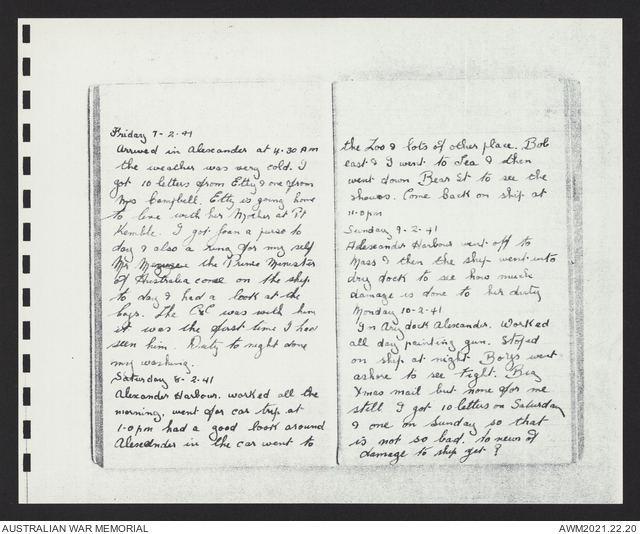 Friday 7-2-41
Arrived in Alexcander at 4.30 AM
the weather was very cold. I
got 10 letters from Etty & one from
Mrs Campbell. Etty is going home
to live with her Mother at Pt
Kemble. I got Joan a purse to
day & also a ring for my self
Mr the Prime Minister
of Australia come on the ship
to day & had a look at the
boys. The C&C was with him
it was the first time I had
seen him. Duty to night done
my washing.
Saturday 8-2-41
Alexander Harbour. worked all the
morning, went for car trip at
1.0pm had a good look around
Alexander in the car went to
the Zoo & lots of other place. Bob
east & I went to Tea & then
went down Bear St to see the
shows. Come back on ship at
11.0pm
Sunday 9-2-41
Alexander Harbour went off to
Mass & then the ship went into
dry dock to see how much
damage is done to her duty
Monday 10-2-41
In dry dock Alexander. Worked
all day painting gun. Stoped
on ship at night Boys went
ashore to see fight. Big
Xmas mail but none for me
still I got 10 letters on Saturday
& one on Sunday so that
is not so bad. No news of
damage to ship yet?
AUSTRALIAN WAR MEMORIAL
AWM2021.22.20